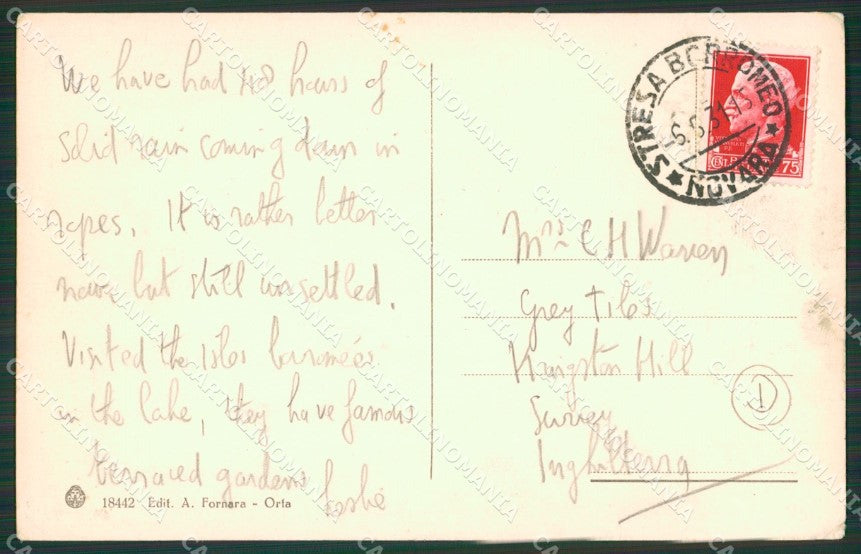 We have had 48 hours of
solid rain coming down in
ropes. It is rather better
now but still unsettled.
Visited the Isles borromées
in the lake, they have famous
terraced gardens
Leslie
18442 Edit. A. Fornara - Orta
STRESA BORROMEO
NOVARA
75
Mrs C H Warren
Grey Tiles
Kingston Hill
Surrey
Inghilterra
1
CARTOLINOMANIA